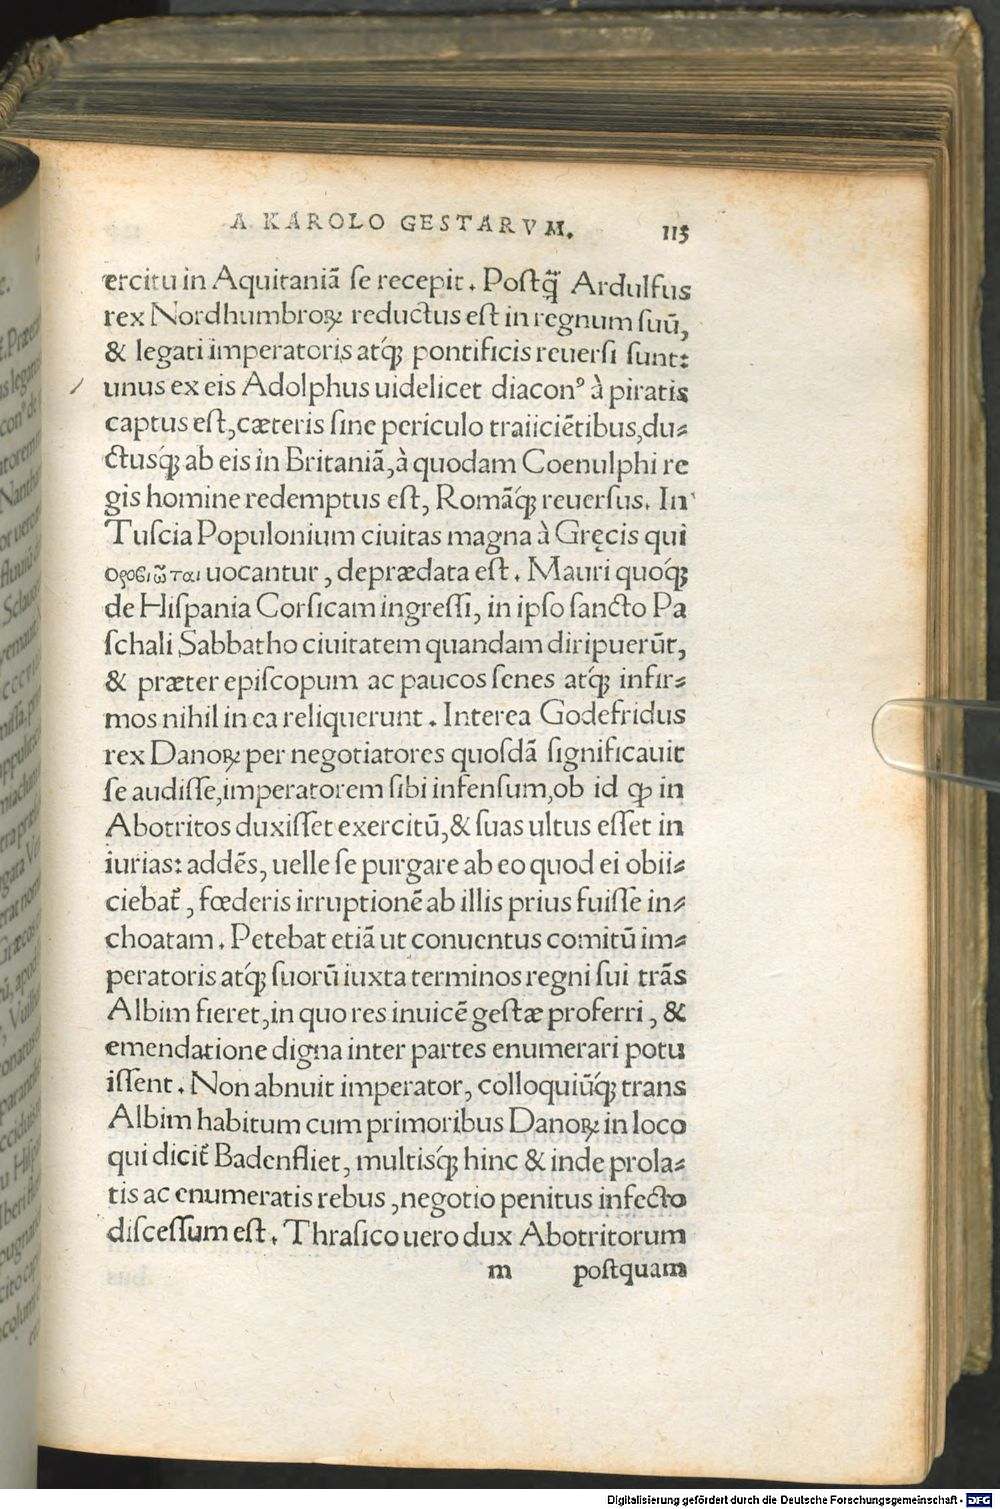 A KAROLO GESTARVM. 115
ercitu in Aquitaniā ſe recepit. Poſtq̃ Ardulfus
rex Nordhumbroꝝ reductus eſt in regnum ſuū,
& legati imperatoris atq́ꝫ pontificis reuerſi ſunt:
unus ex eis Adolphus uidelicet diaconꝰ à piratis
captus eſt, cæteris ſine periculo traiiciētibus, du⸗
ctusq́ꝫ ab eis in Britaniā, à quodam Coenulphi re
gis homine redemptus eſt, Romāq́ꝫ reuerſus. In
Tuſcia Populonium ciuitas magna à Gręcis qui
οροβιῶται uocantur, deprædata eſt. Mauri quoq́ꝫ
de Hiſpania Corſicam ingreſſi, in ipſo ſancto Pa
ſchali Sabbatho ciuitatem quandam diripuerūt,
& præter epiſcopum ac paucos ſenes atq́ꝫ infir⸗
mos nihil in ea reliquerunt. Interea Godefridus
rex Danoꝝ per negotiatores quoſdā ſignificauit
ſe audiſſe, imperatorem ſibi infenſum, ob id ꝙ in
Abotritos duxiſſet exercitū, & ſuas ultus eſſet in
iurias: addēs, uelle ſe purgare ab eo quod ei obii⸗
ciebat̃, fœderis irruptionē ab illis prius fuiſſe in⸗
choatam. Petebat etiā ut conuentus comitū im⸗
peratoris atq́ꝫ ſuorū iuxta terminos regni ſui trãs
Albim fieret, in quo res inuicē geſtæ proferri, &
emendatione digna inter partes enumerari potu
iſſent. Non abnuit imperator, colloquiūq́ꝫ trans
Albim habitum cum primoribus Danoꝝ in loco
qui dicit̃ Badenfliet, multisq́ꝫ hinc & inde prola⸗
tis ac enumeratis rebus, negotio penitus infecto
diſceſſum eſt. Thraſico uero dux Abotritorum
m poſtquam
Digitalisierung gefördert durch die Deutsche Forschungsgemeinschaft - DFG